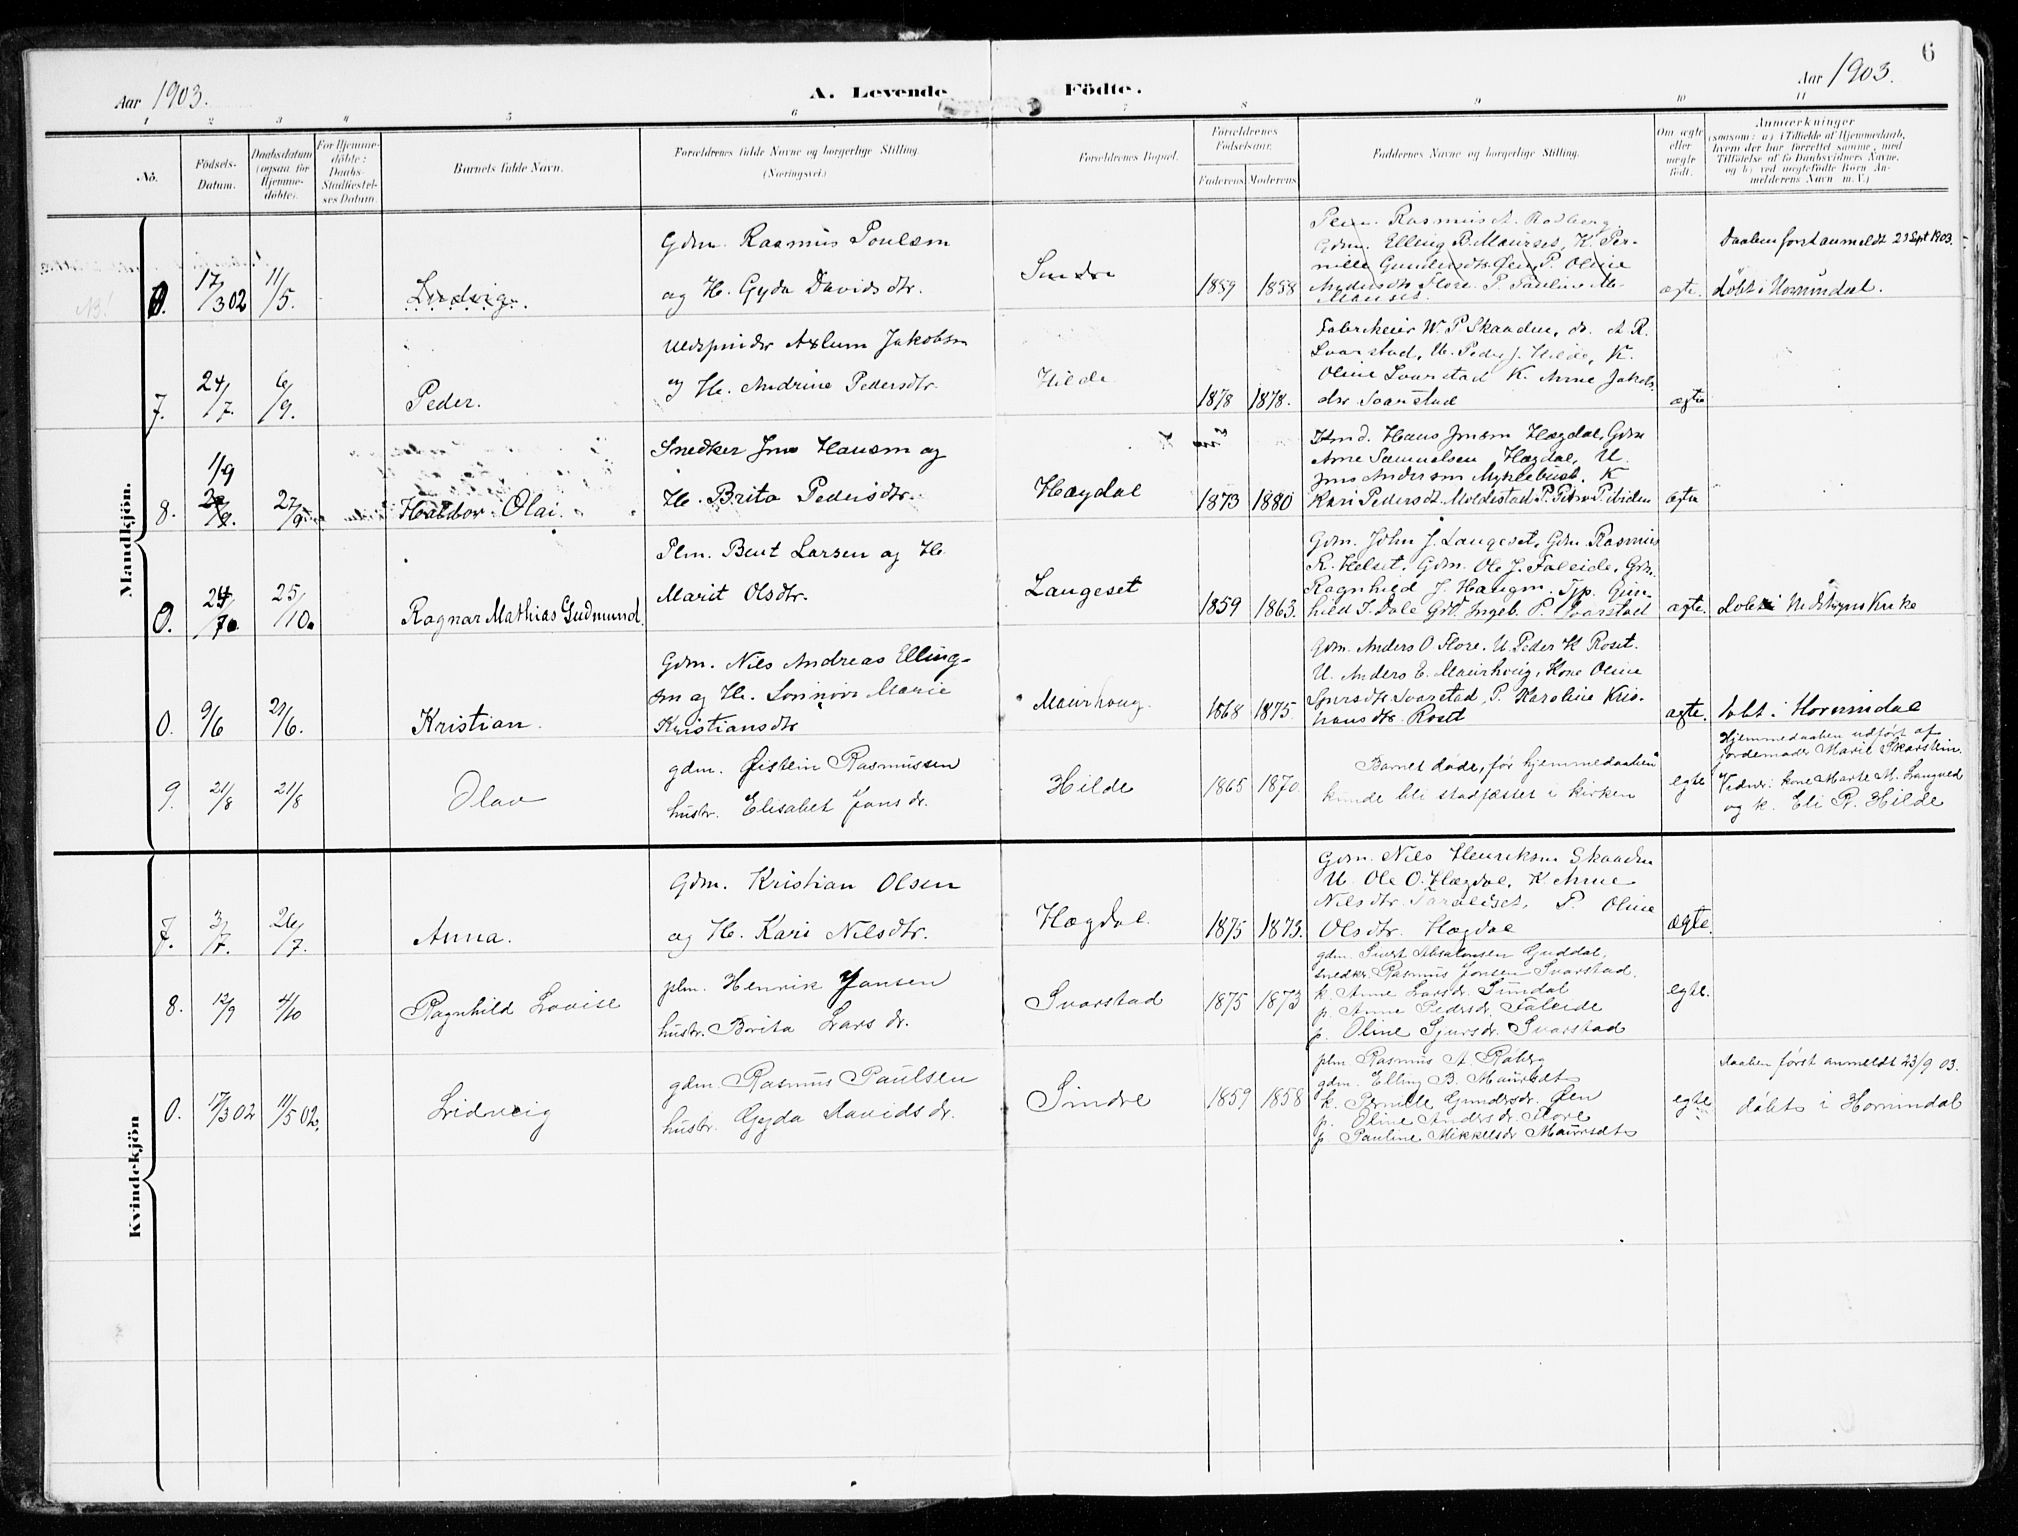 6
Aar 1903.
A. Levende Födte.
Aar 1903.
1 2 3 4 5 6 7 8 9 10 11
No.
Födsels-
Datum.
Daabsdatum
(ogsaa for
Hjemme-
döbte).
For Hjemme-
döbte:
Daabs-
Stadfæstel-
ses Datum.
Barnets fulde Navn.
Forældrenes fulde Navne og borgerlige Stilling.
(Næringsvei.)
Forældrenes Bopæl.
Forældrenes
Födselsaar.
Faderens Moderens
Faddernes Navne og borgerlige Stilling.
Om ægte
eller
uægte
födt.
Anmærkninger
(saasom: a) i Tilfælde af Hjemmedaab,
hvem der har forrettet samme, med
Tilföielse af to Daabsvidners Navne,
og b) ved uægtefödte Börn An-
melderens Navn m. V.)
Mandkjön.
0. 17/3 02 11/5. Ludvig.
Gdm. Rasmus Poulsen
og H. Gyda Davidsdtr.
Sindre
1859 1858
Plm. Rasmus A. Rødberg
Gdm. Elling B. Maurset, K. Per-
nille Gundersdtr Øen, P. Oline
Andersdtr Flore. P. Pauline M.
Maurset.
ægte.
Daaben forst anmeldt 23 Sept 1903.
döbt i Hornindal.
7. 24/7. 6/9. Peder.
Uldspinder Axlum Jakobsen
og H. Andrine Pedersdtr.
Hilde
1878 1878.
Fabrikeier W. P. Skaaden, do. A. R.
Svarstad, U. Peder J. Hilde, K.
Oline Svarstad K. Anne Jakobs-
dtr Svarstad
ægte
8. 1/9 27/9 Halldor Olai.
Snedker Jens Hansen og
H. Brita Pedersdtr.
Hægdal
1873 1880
Hans Jensen Hægdal, Gdm
Arne Samuelsen Hægdal, U.
Jens Andersen Myklebust. K
Kari Pedersdt. Moldestad
ægte
0. 25/10. Ragnar Mathias Gudmund.
Plm. Bent Larsen og H.
Marit Olsdtr.
Langeset
1859 1863.
Gdm. John J. Langeset, Gdm. Rasmus
R. Helset, Gdm. Ole J. Faleide, Gdm.
Ragnhild J. Haugen. Tjp. Gun-
hild T. Dale Gdt. Ingeb. P. Svarstad
ægte.
döbt i Nedstryns Kirke
0. 9/6 21/6. Kristian.
Gdm. Nils Andreas Elling-
sen og H. Sønnøv Marie
Kristiansdtr
Maurhoug.
1868 1875.
Gdm. Anders O Flore. U. Peder K Roset.
U. Anders E. Maurhoug, Kone Oline
Sjursdtr Svarstad, P. Karoline Kris-
tiansdtr. Roset
ægte.
döbt i Hornindal
9. 21/8 21/8 Olav
gdm. Øistein Rasmussen
hustr. Elisabet Jonsdr.
Hilde
1865 1870
Barnet döde, før hjemmedaaben
kunde bli stadfæstet i kirken
egte
Hjemmedaaben udført af
Jordemoder Marie Skarstein.
Vidner: kone Marte M. Langved
og k. Eli R. Hilde
Kvindekjön
7. 3/7. 26/7. Anna.
Gdm. Kristian Olsen
og H. Kari Nilsdtr.
Hægdal.
1875 1873.
Gdm. Nils Henriksen Skaaden
U Ole O. Hægdal, K. Anne
Nilsdtr. Taraldset, P. Oline
Olsdtr. Hægdal
ægte.
8. 12/9 4/10 Ragnhild Lovise
plm. Henrik Jansen
hustr. Borita Larsdr.
Svarstad
1875 1873
gdm. Sivert Absalonsen Guddal,
snedkr. Rasmus Jonsen Svarstad.
k. Anne Larsdr. Sundal
p. Anne Pedersdr. Faleide
p. Oline Sjursdr. Svarstad
egte.
0. 17/3 02 11/5 02. Lidveig
gdm. Rasmus Paulsen
hustr. Gyda Davidsdr.
Sindre
1859 1858
plm. Rasmus A. Røberg
gdm. Elling B. Maurset
k. Pernille Gundersdr. Øen
p. Oline Andersdr. Flore
p. Pauline Mikkelsdr Maurset
egte
daaben først anmeldt 23/9 03.
döbt i Hornindal